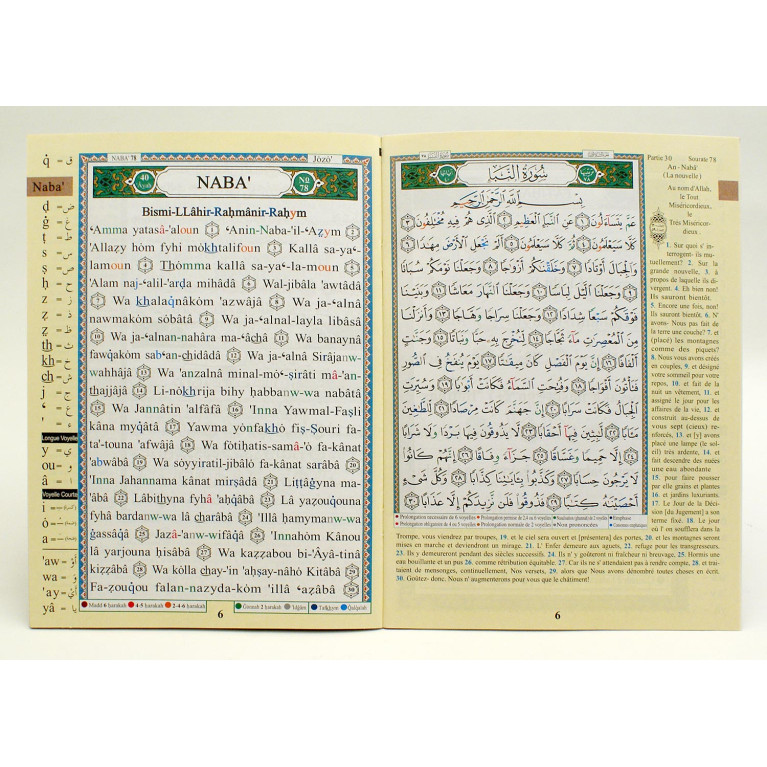 NABA' 78
Jòzò'
40
Ayah
NABA'
№
78
Bismi-LLâhir-Raḥmânir-Raḥym
ʿAmma yatasâ-'aloun 1 ʿAnin-Naba-'il-ʿAẓym 2
'Allaẓy hòm fyhi mòkhtalifoun 3 Kallâ sa-yaʿ-
lamoun 4 Thòmma kallâ sa-yaʿ-la-moun 5
'Alam naj-ʿalil-'arḍa mihâdâ 6 Wal-jibâla 'awtâdâ
7 Wa khalaqnâkòm 'azwâjâ 8 Wa ja-ʿalnâ
nawmakòm sòbâtâ 9 Wa ja-ʿalnal-layla libâsâ
10 Wa ja-ʿalnan-nahâra ma-ʿâchâ 11 Wa banaynâ
fawqakòm sabʿan-chidâdâ 12 Wa ja-ʿalnâ Sirâjanw-
wahhâjâ 13 Wa 'anzalnâ minal-mòʿ-ṣirâti mâ-'an-
thajjâjâ 14 Li-nòkhrija bihy ḥabbanw-wa nabâtâ
15 Wa Jannâtin 'alfâfâ 16 'Inna Yawmal-Faṣli
kâna myqâtâ 17 Yawma yònfakhò fiṣ-Ṣouri fa-
ta'-touna 'afwâjâ 18 Wa fòtiḥatis-samâ-'ò fa-kânat
'abwâbâ 19 Wa sòyyiratil-jibâlò fa-kânat sarâbâ 20
'Inna Jahannama kânat mirṣâdâ 21 Liṭṭâġyna ma-
'âbâ 22 Lâbithyna fyhâ 'aḥqâbâ 23 Lâ yaẓouqouna
fyhâ bardanw-wa lâ charâbâ 24 'Illâ ḥamymanw-wa
ġassâqâ 25 Jazâ-'anw-wifâqâ 26 'Innahòm Kânou
lâ yarjouna ḥisâbâ 27 Wa kaẓẓabou bi-'Âyâ-tinâ
kiẓẓâbâ 28 Wa kòlla chay-'in 'aḥṣay-nâhò Kitâbâ 29
Fa-ẓouqou falan-nazyda-kòm 'illâ ʿaẓâbâ 30
Madd 6 ḥarakah 4-5 ḥarakah 2-4-6 ḥarakah Ġonnah 2 ḥarakah 'Idġâm Tafkhym Qalqalah
6
Naba'
Longue Voyelle
Voyelle Courte
سُورَةُ النَّبَإِ
بِسْمِ اللَّهِ الرَّحْمَٰنِ الرَّحِيمِ
عَمَّ يَتَسَاءَلُونَ ١ عَنِ النَّبَإِ الْعَظِيمِ ٢ الَّذِي هُمْ فِيهِ مُخْتَلِفُونَ ٣
كَلَّا سَيَعْلَمُونَ ٤ ثُمَّ كَلَّا سَيَعْلَمُونَ ٥ أَلَمْ نَجْعَلِ الْأَرْضَ مِهَٰدًا ٦
وَالْجِبَالَ أَوْتَادًا ٧ وَخَلَقْنَٰكُمْ أَزْوَٰجًا ٨ وَجَعَلْنَا نَوْمَكُمْ سُبَاتًا
٩ وَجَعَلْنَا الَّيْلَ لِبَاسًا ١٠ وَجَعَلْنَا النَّهَارَ مَعَاشًا ١١ وَبَنَيْنَا
فَوْقَكُمْ سَبْعًا شِدَادًا ١٢ وَجَعَلْنَا سِرَاجًا وَهَّاجًا ١٣ وَأَنزَلْنَا
مِنَ الْمُعْصِرَٰتِ مَاءً ثَجَّاجًا ١٤ لِّنُخْرِجَ بِهِ حَبًّا وَنَبَاتًا ١٥ وَجَنَّٰتٍ
أَلْفَافًا ١٦ إِنَّ يَوْمَ الْفَصْلِ كَانَ مِيقَٰتًا ١٧ يَوْمَ يُنفَخُ فِي الصُّورِ
فَتَأْتُونَ أَفْوَاجًا ١٨ وَفُتِحَتِ السَّمَاءُ فَكَانَتْ أَبْوَٰبًا ١٩ وَسُيِّرَتِ
الْجِبَالُ فَكَانَتْ سَرَابًا ٢٠ إِنَّ جَهَنَّمَ كَانَتْ مِرْصَادًا ٢١ لِّلطَّٰغِينَ
مَـَٔابًا ٢٢ لَّٰبِثِينَ فِيهَا أَحْقَابًا ٢٣ لَّا يَذُوقُونَ فِيهَا بَرْدًا وَلَا شَرَابًا
٢٤ إِلَّا حَمِيمًا وَغَسَّاقًا ٢٥ جَزَاءً وِفَاقًا ٢٦ إِنَّهُمْ كَانُوا
لَا يَرْجُونَ حِسَابًا ٢٧ وَكَذَّبُوا بِـَٔايَٰتِنَا كِذَّابًا ٢٨ وَكُلَّ شَيْءٍ
أَحْصَيْنَٰهُ كِتَٰبًا ٢٩ فَذُوقُوا فَلَن نَّزِيدَكُمْ إِلَّا عَذَابًا ٣٠
Partie 30 Sourate 78
An - Naba'
(La nouvelle)
Au nom d'Allah,
le Tout
Miséricordieux,
le
Très Miséricor-
dieux.
1. Sur quoi s' in-
terrogent- ils mu-
tuellement? 2. Sur la
grande nouvelle, 3. à
propos de laquelle ils di-
vergent. 4. Eh bien non!
Ils sauront bientôt.
5. Encore une fois, non!
Ils sauront bientôt. 6. N'
avons- Nous pas fait de
la terre une couche? 7. et
(placé) les montagnes
comme des piquets?
8. Nous vous avons créés
en couples, 9. et désigné
votre sommeil pour votre
repos, 10. et fait de la
nuit un vêtement, 11. et
assigné le jour pour les
affaires de la vie, 12. et
construit au-dessus de
vous sept (cieux) ren-
forcés, 13. et [y] avons
placé une lampe (le sol-
eil) très ardente, 14. et
fait descendre des nuées
une eau abondante
15. pour faire pousser
par elle grains et plantes
16. et jardins luxuriants.
17. Le Jour de la Déci-
sion [du Jugement] a son
terme fixé. 18. Le jour
où l' on soufflera dans la
Trompe, vous viendrez par troupes, 19. et le ciel sera ouvert et [présentera] des portes, 20. et les montagnes seront
mises en marche et deviendront un mirage. 21. L' Enfer demeure aux aguets, 22. refuge pour les transgresseurs.
23. Ils y demeureront pendant des siècles successifs. 24. Ils n' y goûteront ni fraîcheur ni breuvage, 25. Hormis une
eau bouillante et un pus 26. comme rétribution équitable. 27. Car ils ne s' attendaient pas à rendre compte, 28. et trai-
taient de mensonges, continuellement, Nos versets, 29. alors que Nous avons dénombré toutes choses en écrit.
30. Goûtez- donc. Nous n' augmenterons pour vous que le châtiment!
6